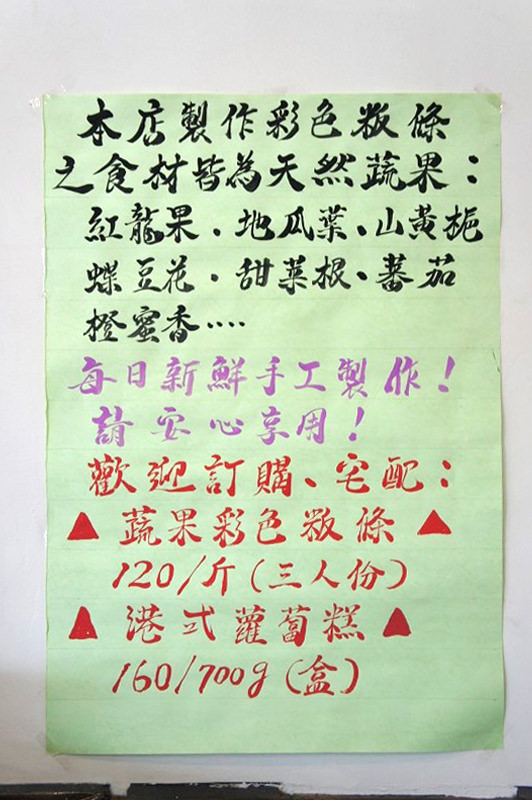 本店製作彩色粄條
之食材皆為天然蔬果：
紅龍果、地瓜葉、山黃梔
蝶豆花、甜菜根、蕃茄
橙蜜香....
每日新鮮手工製作！
請安心享用！
歡迎訂購、宅配：
▲蔬果彩色粄條▲
120/斤(三人份)
▲港式蘿蔔糕▲
160/700g(盒)